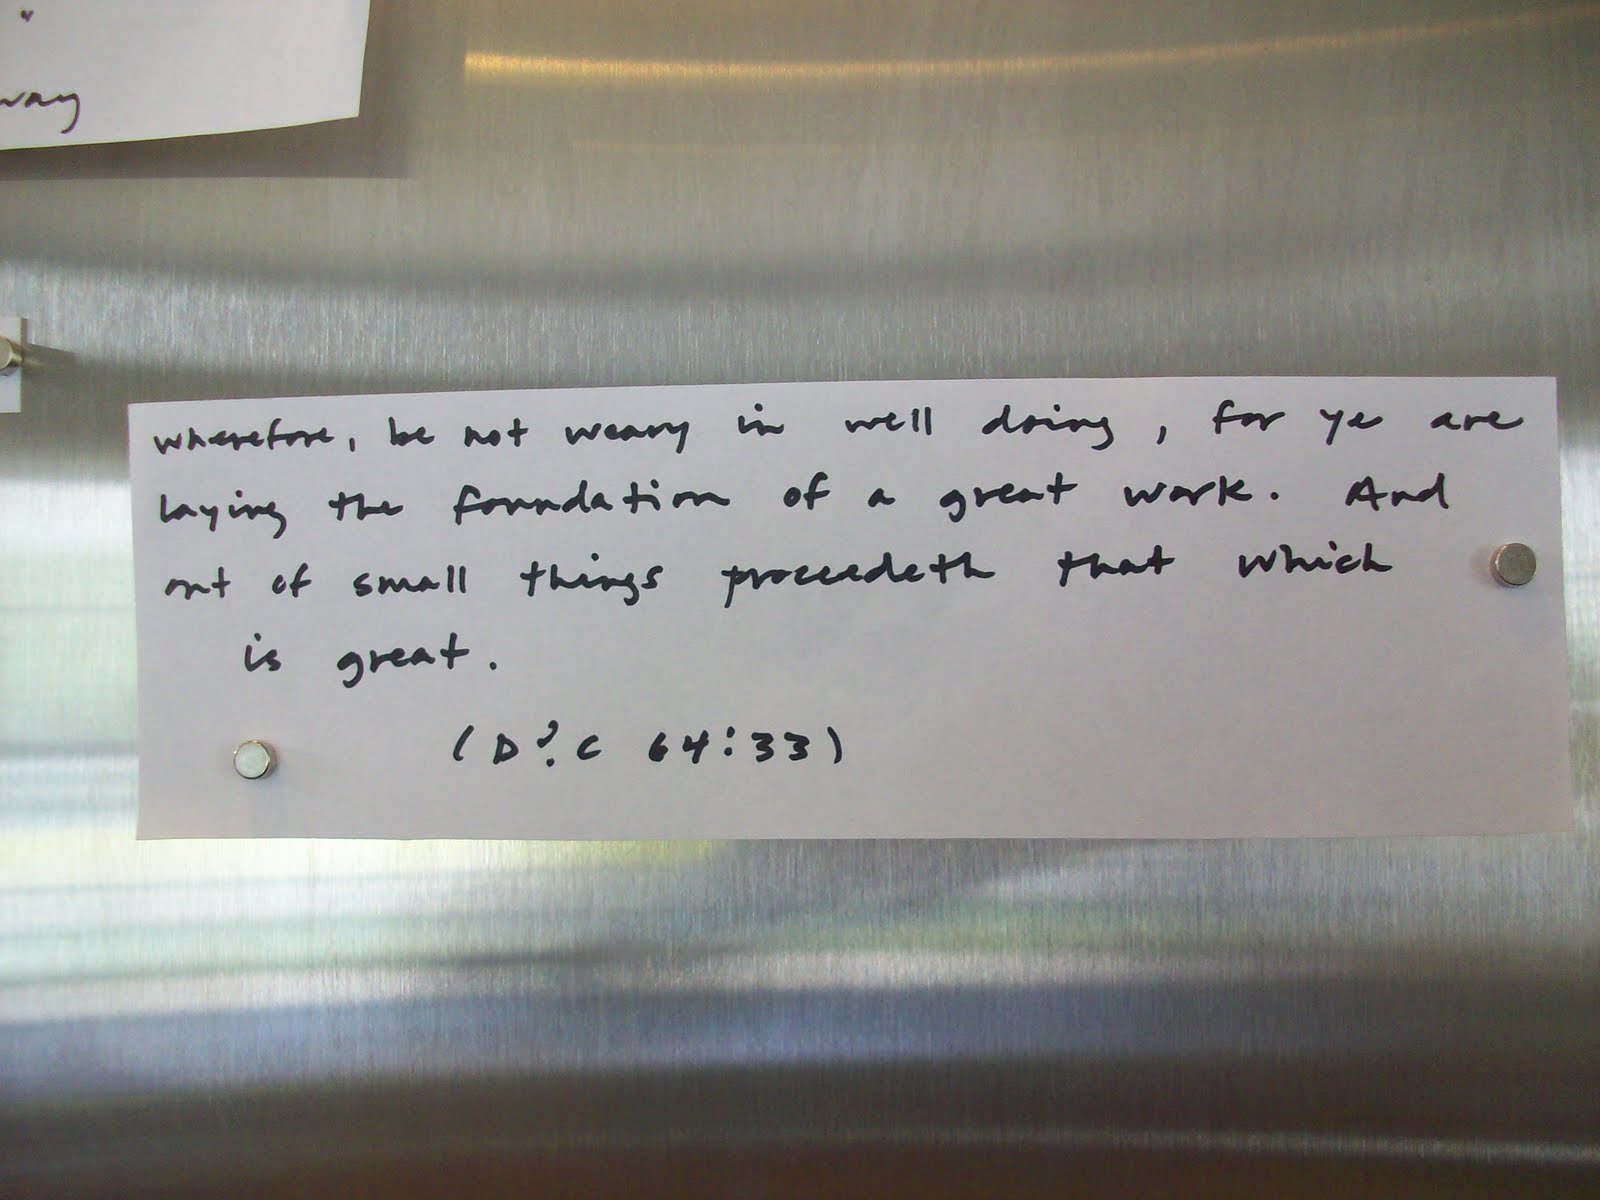 way
wherefore, be not weary in well doing, for ye are
laying the foundation of a great work. And
out of small things proceedeth that which
is great.
(D&C 64:33)